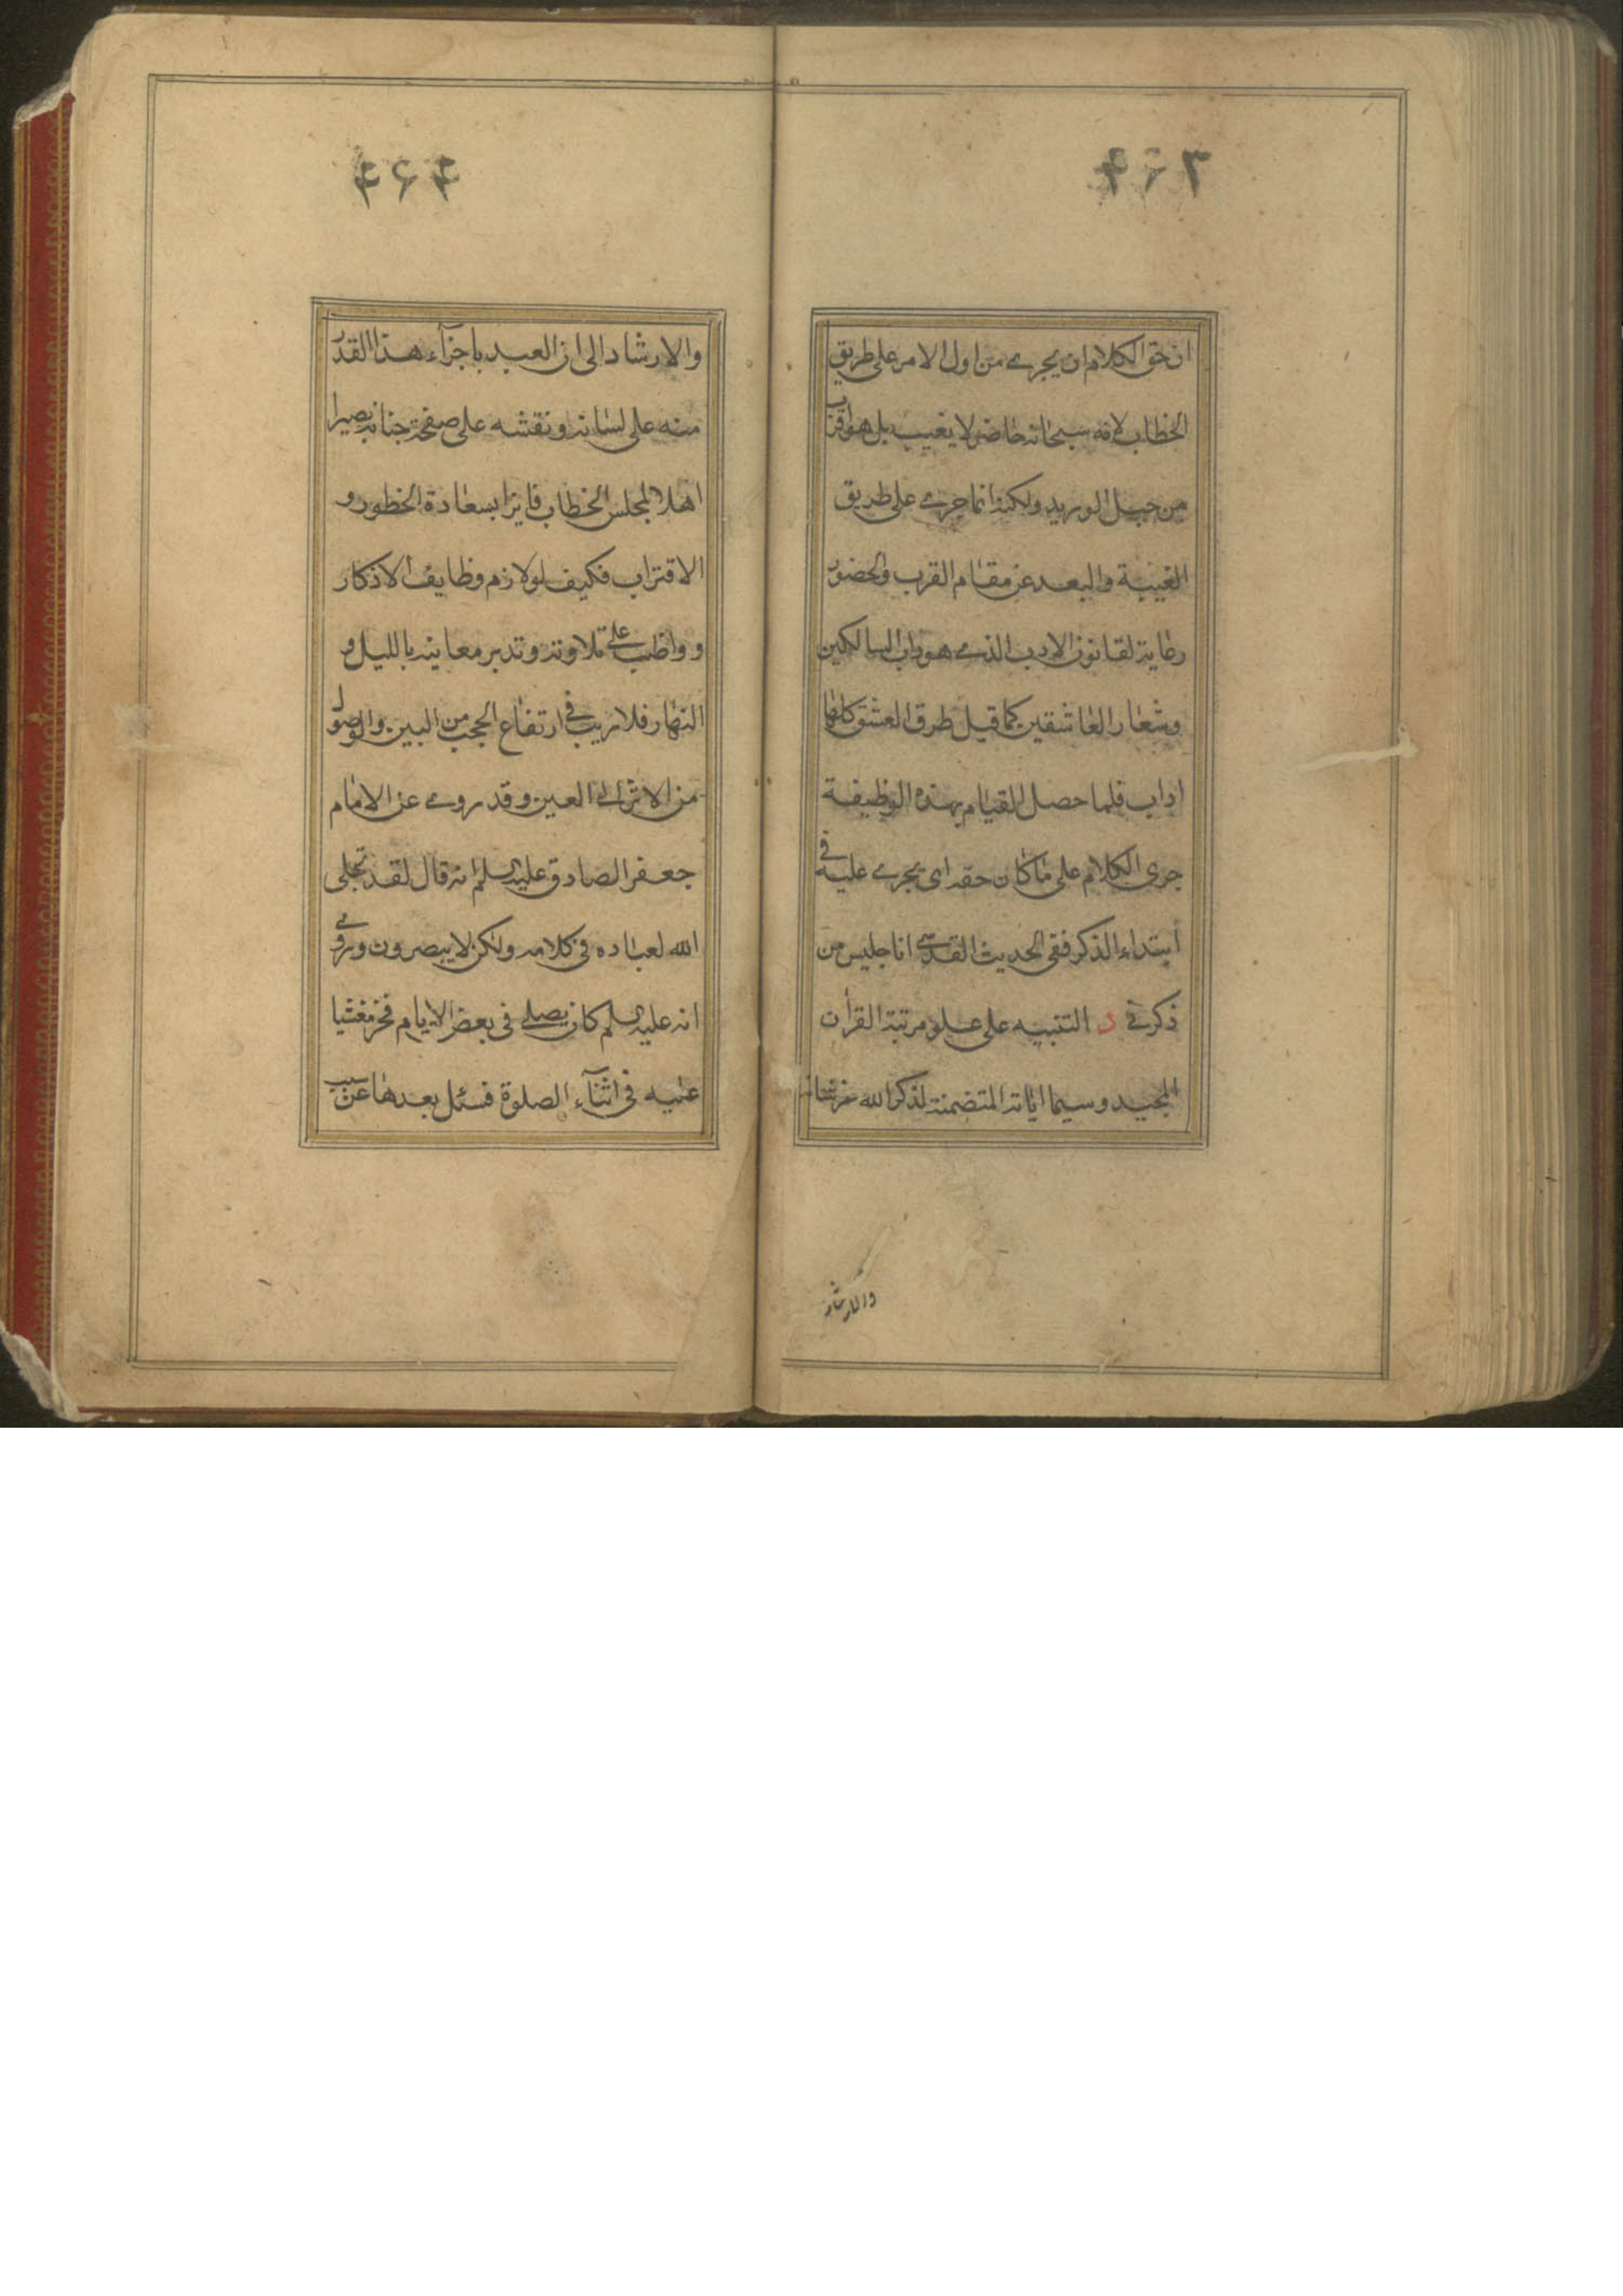 ان حق الكلام ان يجرى من اول الامر على طريق
الخطاب لانه سبحانه حاضر لا يغيب بل هو اقرب
من حبل الوريد ولكنه انما جرى على طريق
الغيبة والبعد عن مقام القرب والحضور
رعاية لقانون الادب الذى هو داب السالكين
وشعار العاشقين كما قيل طرق العشق كلها
اداب فلما حصل القيام بهذه الوظيفة
جرى الكلام على ما كان حقه اى يجرى عليه فى
ابتداء الذكر ففى الحديث القدسى انا جليس من
ذكرنى د التنبيه على علو مرتبة القرأن
المجيد وسيما اياته المتضمنة لذكر الله عز شانه
والارشاد
والارشاد الى ان العبد باجزآء هذا القدر
منه على لسانه ونقشه على صفحة جنانه يصير
اهلا لمجلس الخطاب فايزا بسعادة الخطور و
الاقتراب فكيف لو لازم وظايف الاذكار
و واظب على تلاوته وتدبر معانيه بالليل و
النهار فلا ريب فى ارتفاع الحجب من البين والوصول
من الاثر الى العين وقد روى عن الامام
جعفر الصادق عليه السلم انه قال لقد تجلى
الله لعباده فى كلامه ولكن لا يبصرون وروى
انه عليه السلم كان يصلى فى بعض الايام فخر مغشيا
عليه فى اثنآء الصلوة فسئل بعدها عن سبب